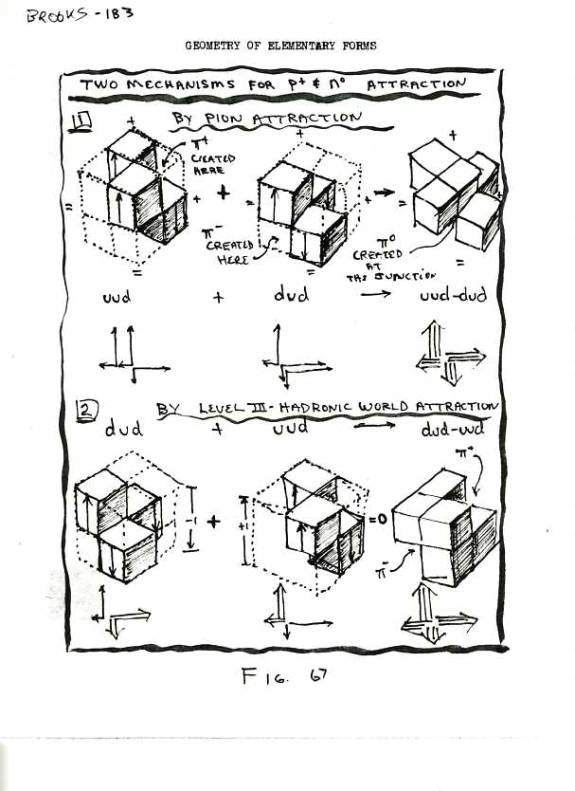 BROOKS-183
GEOMETRY OF ELEMENTARY FORMS
TWO MECHANISMS FOR P+ & n° ATTRACTION
1 BY PION ATTRACTION
+
+
+
π+
CREATED
HERE
=
+
+
=
+
→
=
π-
CREATED
HERE
π°
CREATED
AT
THE JUNCTION
=
=
=
uud + dud → uud-dud
2 BY LEVEL III-HADRONIC WORLD ATTRACTION
dud + uud → dud-uud
π+
-1
+
+1
=0
π-
FIG. 67